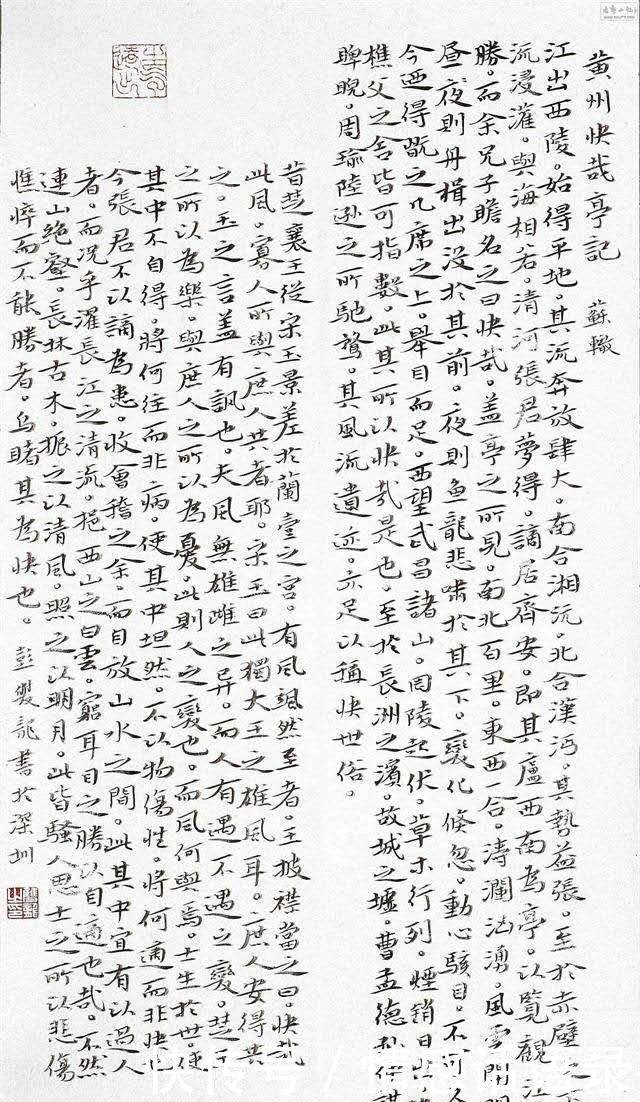 黄州快哉亭記 蘇轍
江出西陵。始得平地。其流奔放肆大。南合湘沅。北合漢沔。其勢益張。至於赤壁之下
流浸灌。與海相若。清河張君夢得。謫居齊安。即其廬西南為亭。以覽觀江
勝。而余兄子瞻名之曰快哉。盖亭之所見。南北百里。東西一合。濤瀾洶湧。風雲開
晝夜則舟楫出没於其前。夜則魚龍悲嘯於其下。變化倏忽。動心駭目。不可久
今迺得翫之几席之上。舉目而足。西望武昌諸山。罔陵起伏。草木行列。煙銷日出。
樵父之舍皆可指數。此其所以快哉是也。至於長洲之濱。故城之墟。曹孟德孫仲謀
睥睨。周瑜陸遜之所馳騖。其風流遺迹。亦足以稱快世俗。
昔楚襄王從宋玉景差於蘭臺之宮。有風颯然至者。王披襟當之曰。快哉
此風。寡人所與庶人共者耶。宋玉曰此獨大王之雄風耳。庶人安得共
之。玉之言盖有諷也。夫風無雄雌之异。而人有遇不遇之變。楚王
之所以為樂。與庶人之所以為憂。此則人之變也。而風何與焉。士生於世。使
其中不自得。將何往而非病。使其中坦然。不以物傷性。將何適而非快
今張君不以謫為患。收會稽之余。而自放山水之間。此其中宜有以過人
者。而况乎濯長江之清流。挹西山之白雲。窮耳目之勝以自適也哉。不然
連山絕壑。長林古木。振之以清風。照之以明月。此皆騷人思士之所以悲傷
憔悴而不能勝者。烏睹其為快也。彭雙龍書於深圳
快传号/情感语录